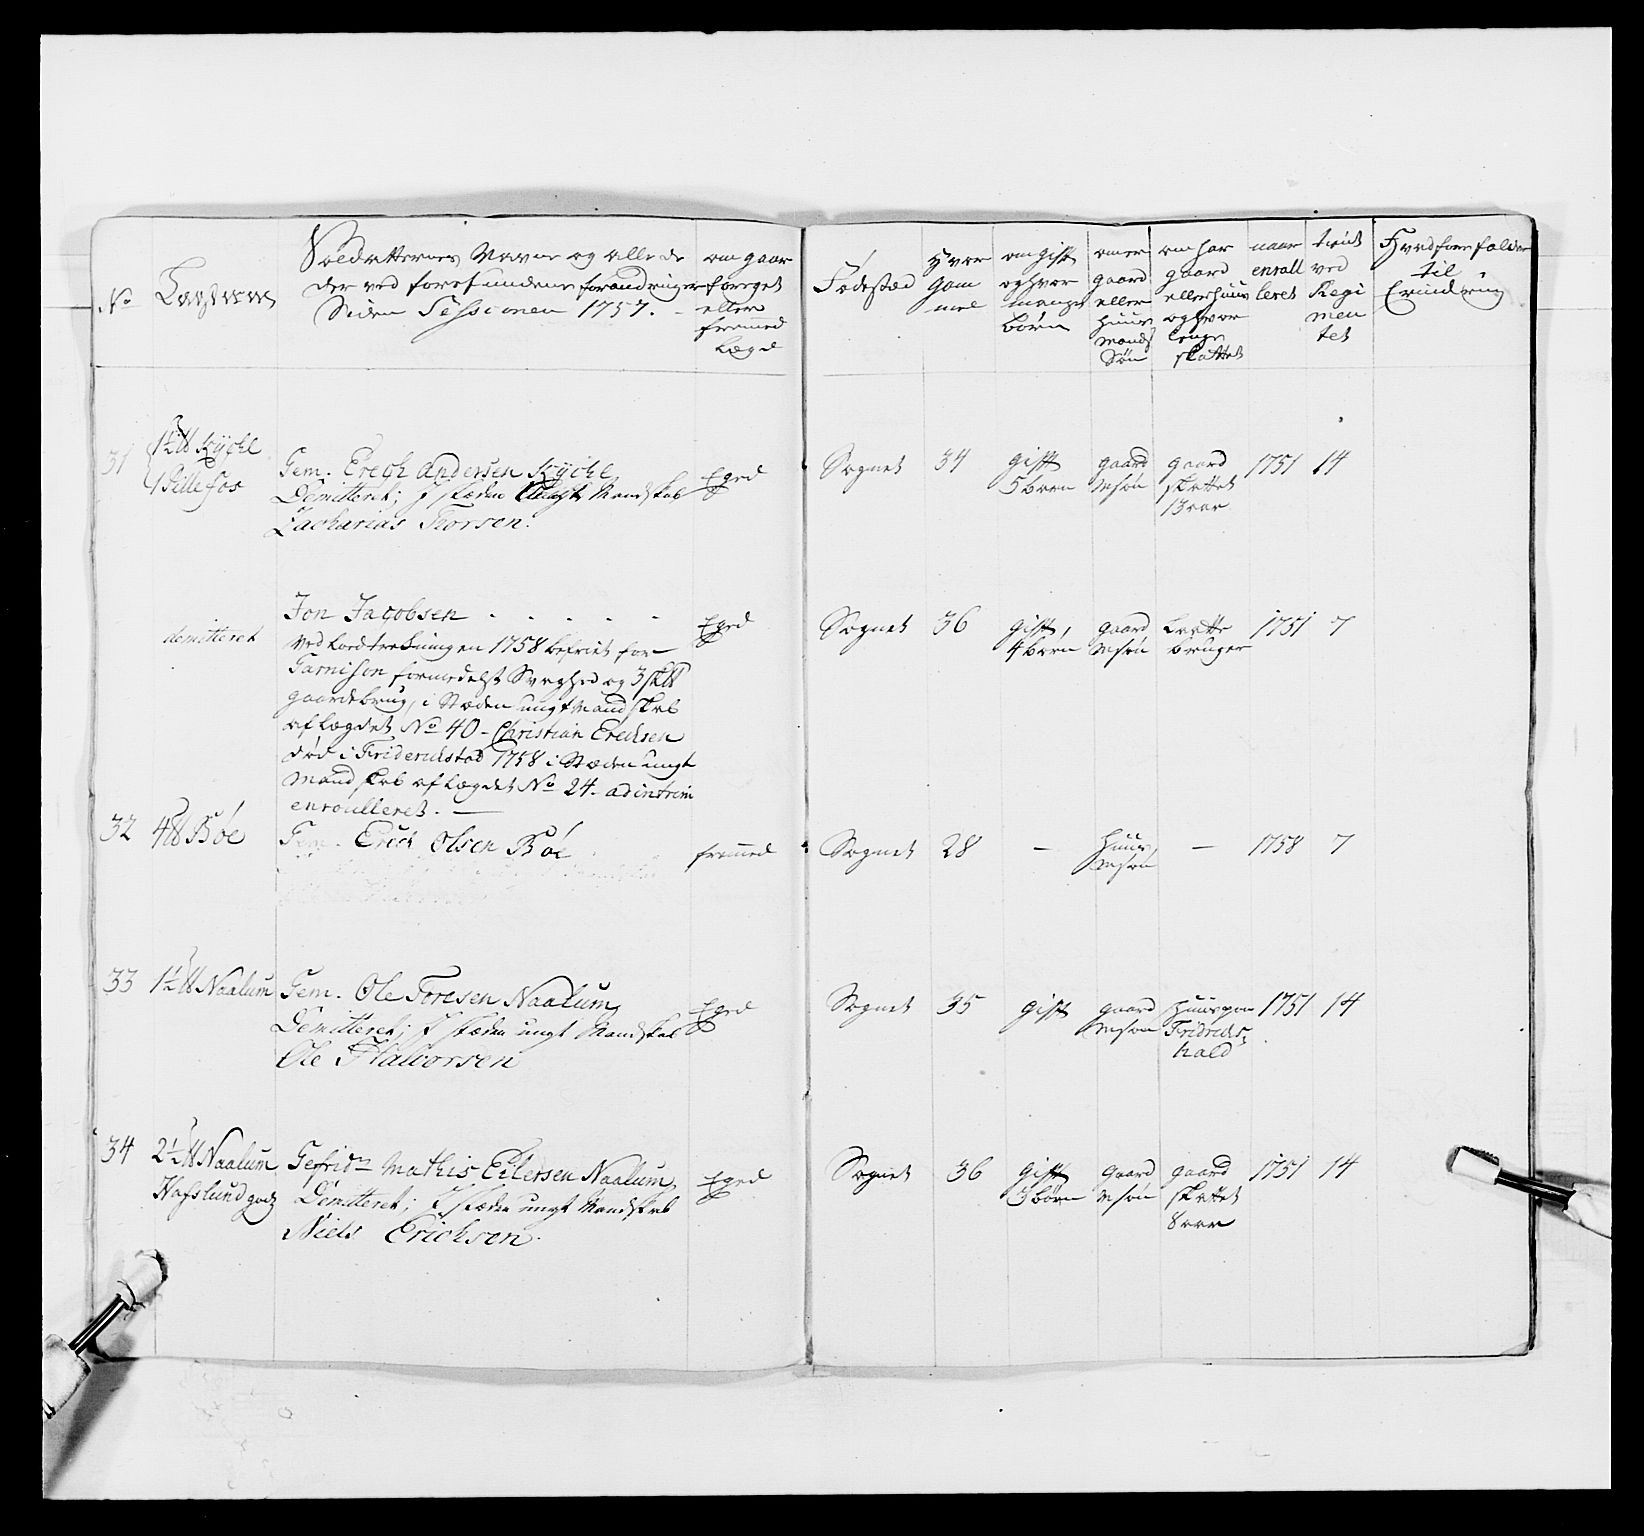 No
Soldatternes Navne og alle de
der ved forefundene forandringer
Siden Sessionen 1757. -
om gaar
for eget
eller
fremmed
Lægd
Fødested
Hvor
Gam
mel
om gift
og hvor
mange
børn
om er
gaard
eller
huus
mands
Søn
om har
gaard
eller huus
og hvor
lenge
skattet
naar
enroll
leret
tient
ved
Regi
men
tet
Hved forre falder
til
Erindring
31
Gem. Erech Andersen
Demitteret; J stæden ungt Mandskab
Zacharias Torsen.
Eged
Sognet
34
gift
5 børn
gaard
m søn
gaard
skattet
13 aar
1751
14
demitteret
Jon Jacobsen - - - - -
ved Lodtrekningen 1758 befriet for
Garnison formedelst Svaghed og 3
gaardebrug, i Stæden ungt Mandskab
af Lægdet No 40 - Christian Erechsen
død i Friderichstad 1758 i Stæden ungt
Mandskab af Lægdet No 24. ad intrim
enroulleret. —
Eged
Sognet
36
gift,
4 børn
gaard
m søn
bruger
1751
7
32
4 Bøe
Gem. Erich Olsen Bøe
fremmed
Sognet
28
—
huus
m søn
—
1758
7
33
1½ Naalum
Gem. Ole Toresen Naalum
Demitteret; J stæden ungt Mandskab
Ole Halvorsen
Eged
Sognet
35
gift
gaard
m søn
Fridrichs-
hald
1751
14
34
2½ Naalum
Hafslund gods
Gefrid Mathis Eilersen Naalum
Demitteret; J stæden ungt Mandskab
Niels Erichsen.
Eged
Sognet
36
gift
3 børn
gaard
m søn
gaard
skattet
8 aar
1751
14